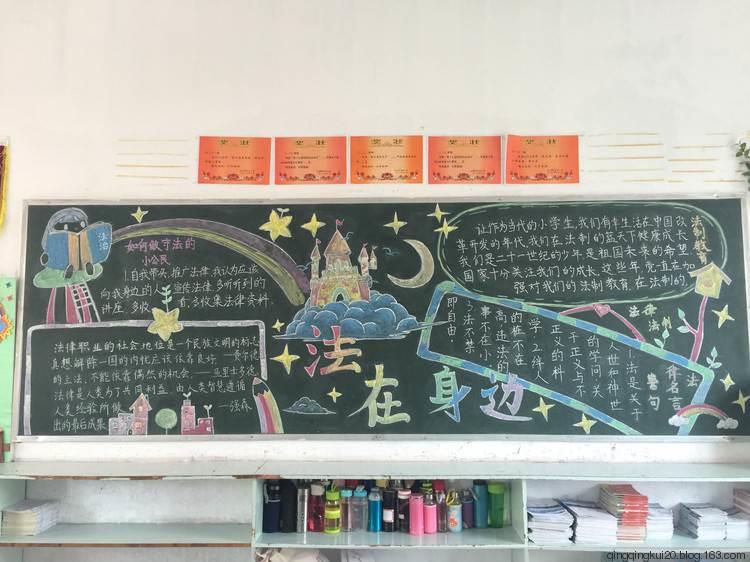 奖状
奖状
奖状
奖状
奖状
法治
如何做守法的
小公民
1.自我带头,推广法律,我认为应该
向我身边的人宣传法律,多听听的
讲座,多收
看,多收集法律资料.
法律职业的社会地位是一个民族文明的标志
——费尔德
的立法,不能依靠偶然的机会.——亚里士多德
法律是人类为了共同利益,由人类智慧遵循
人类经验所做
出的最后成果
——强森
法在身边
让作为当代的小学生,我们有幸生活在中国改
革开发的年代,我们在法制的蓝天下健康成长,
我们是二十一世纪的少年是祖国未来的希望,
国家十分关注我们的成长,这些年,党一直在加
强对我们的法制教育.在法制的
法制教育
法律法制
法律名言
警句
1.法是关于
人世和神世
的学问,关
于正义与不
正义的科
学.2.绊人
的桩,不在
高;违法的
事,不在小.
3.法不禁
即自由.
qingqingkui20.blog.163.com